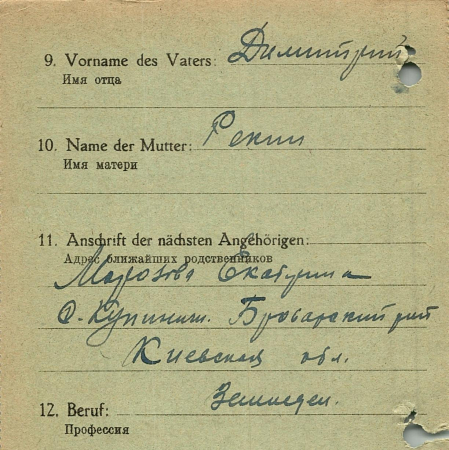 9. Vorname des Vaters: Димитрий
Имя отца
10. Name der Mutter:
Имя матери
11. Anschrift der nächsten Angehörigen:
Адрес ближайших родственников
Морозова Екатерина
Броварский
Киевская обл.
12. Beruf: Земледел.
Профессия